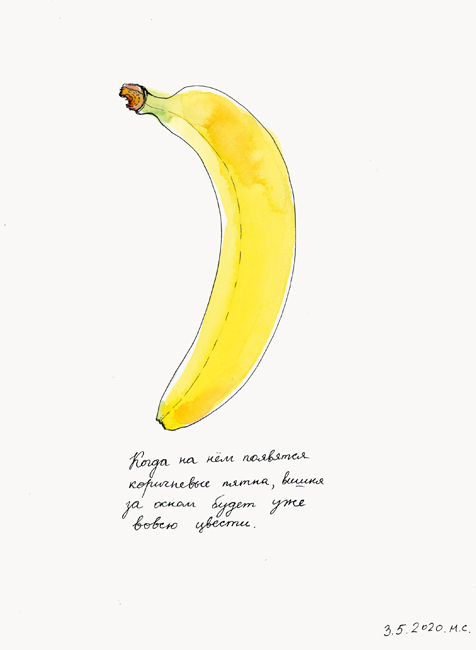 Когда на нём появятся
коричневые пятна, вишня
за окном будет уже
вовсю цвести.
3.5.2020.м.с.